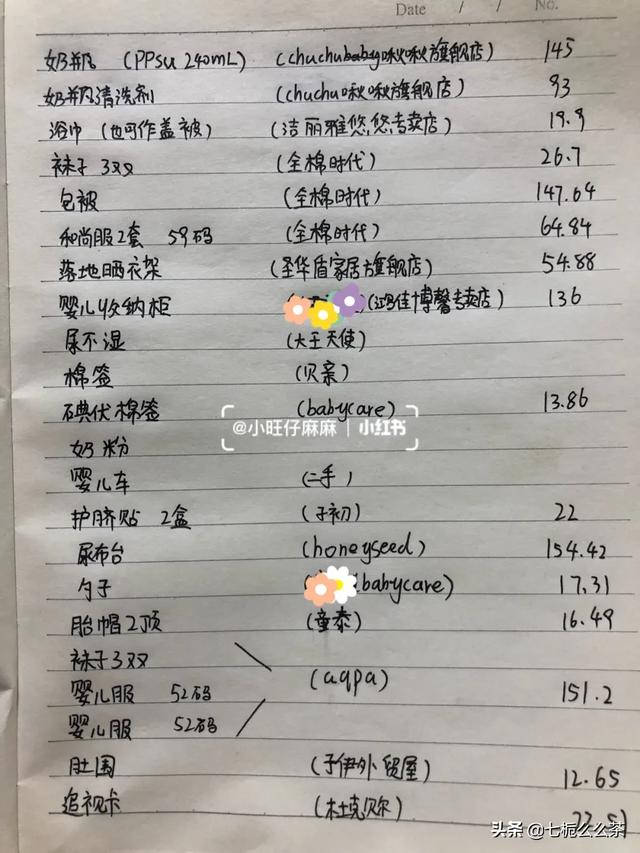 Date / / No.
奶瓶 (PPSU 240mL) (chuchubaby啾啾旗舰店) 145
奶瓶清洗剂 (chuchu啾啾旗舰店) 93
浴巾 (也可作盖被) (洁丽雅悠悠专卖店) 19.9
袜子 3双 (全棉时代) 26.7
包被 (全棉时代) 147.64
和尚服2套 59码 (全棉时代) 64.84
落地晒衣架 (圣华盾家居旗舰店) 54.88
婴儿收纳柜 (鸿佳博馨专卖店) 136
尿不湿 (大王天使)
棉签 (贝亲)
碘伏棉签 (babycare) 13.86
@小旺仔麻麻 | 小红书
奶粉
婴儿车 (二手)
护脐贴 2盒 (子初) 22
尿布台 (honeyseed) 154.42
勺子 (babycare) 17.31
胎帽2顶 (童泰) 16.49
袜子3双
(aqpa) 151.2
婴儿服 52码
婴儿服 52码
肚围 (子伊外贸屋) 12.65
追视卡 (杜克贝尔) 22.51
头条 @七栀么么茶